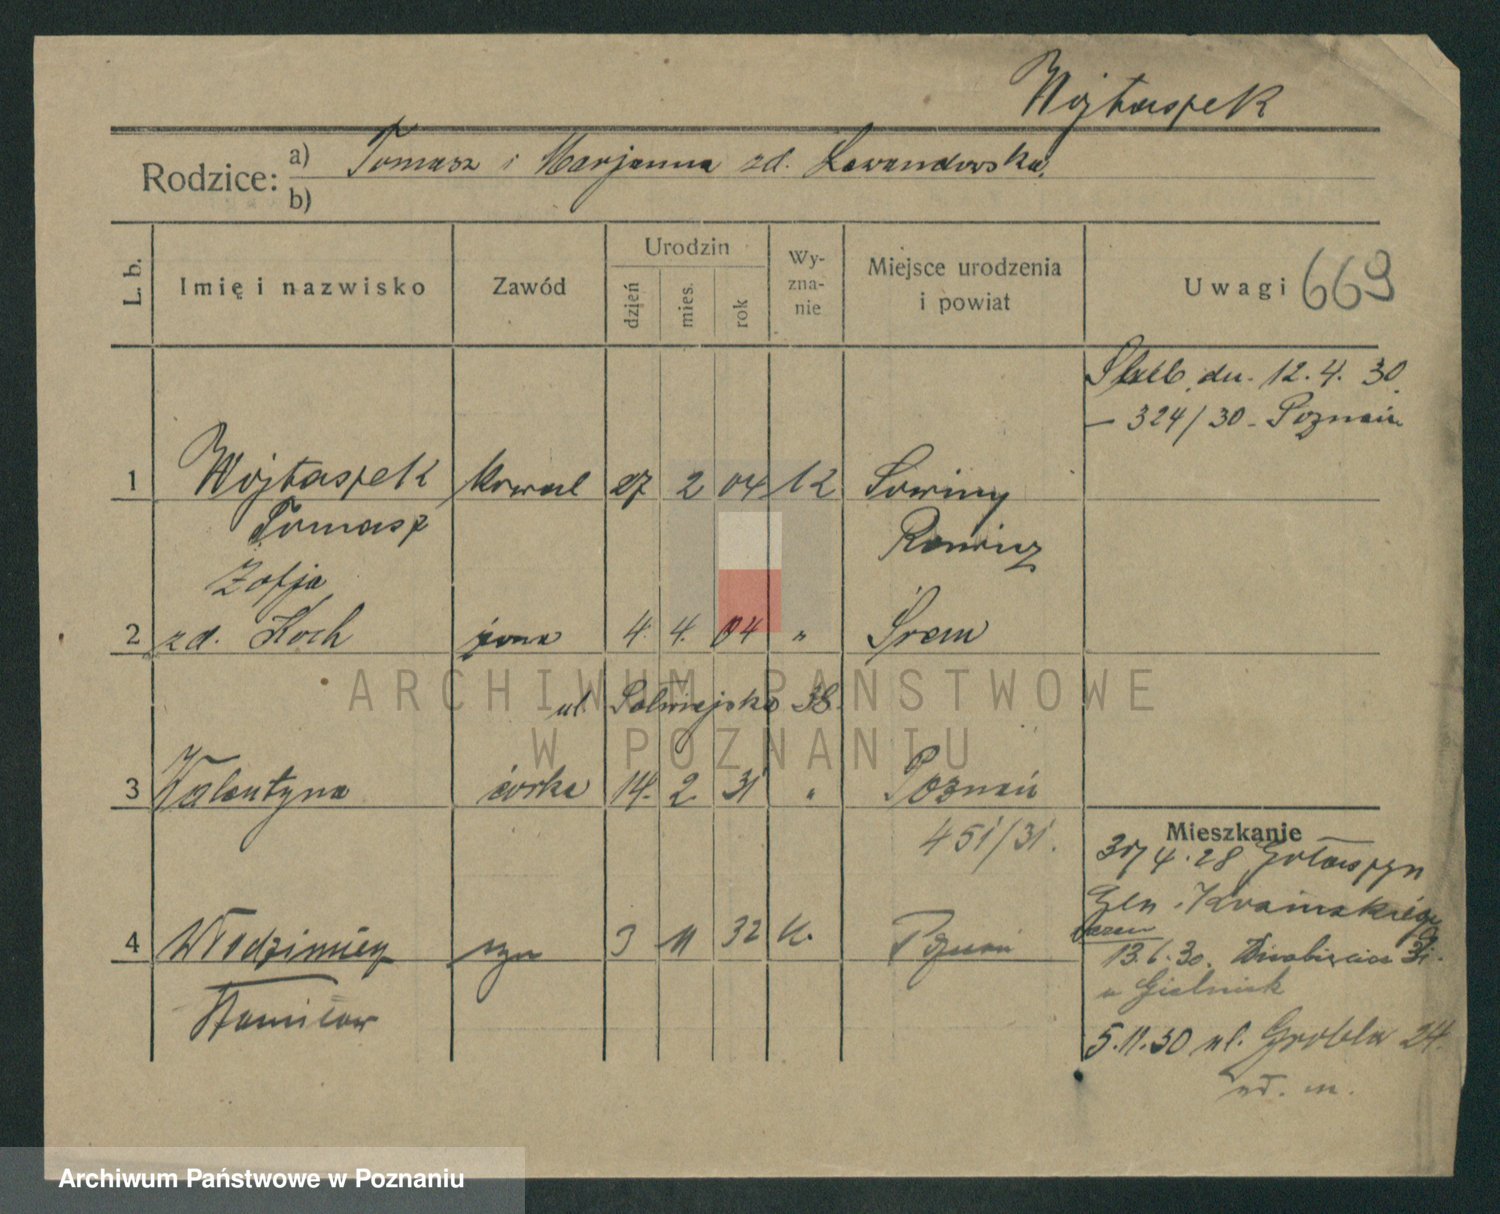 Wojtaszek
Rodzice: a) Tomasz i Marjanna zd. Lewandowska.
b)
L. b.
Imię i nazwisko
Zawód
Urodzin
dzień
mies.
rok
Wy-
zna-
nie
Miejsce urodzenia
i powiat
Uwagi 669
Ślub dn. 12.4.30
— 324/30 - Poznań
1 Wojtaszek kowal 27 2 04 k Sowiny
Tomasz Rawicz
Zofja
2 zd. Koch żona 4. 4. 04 „ Śrem
ARCHIWUM PAŃSTWOWE
ul. Półwiejska 38.
W POZNANIU
3 Walentyna córka 14. 2 31 „ Poznań
451/31.
Mieszkanie
4.28 Gołaszyn
Gen.
4 Włodzimierz syn 3 11 32 k. Poznań
13.6.30. 31.
u Gielniak
Stanisław
5.11.30 ul. Grobla 24.
wł. m.
Archiwum Państwowe w Poznaniu